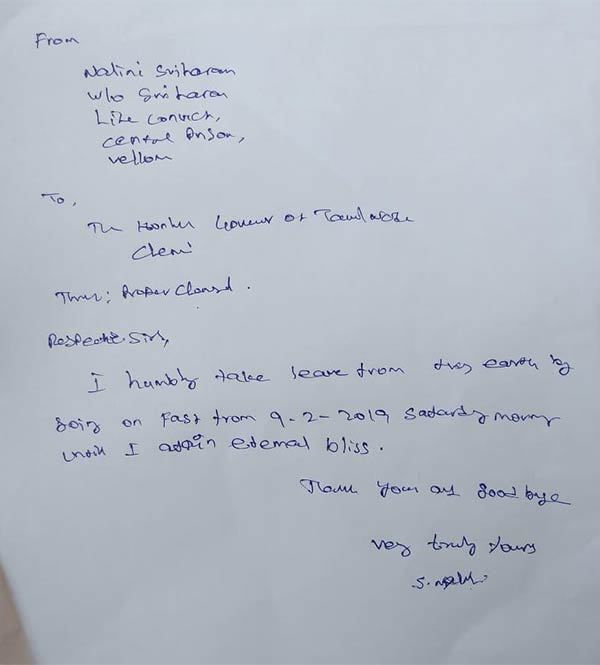 From
Nalini Sriharan
W/o Sriharan
Life convict,
central Prison,
vellore
To,
The Honble Governer of Tamilnadu
Chennai
Thru; Proper Channel.
Respected Sir,
I humbly take leave from this earth by
going on fast from 9-2-2019 Saturday morning
until I attain eternal bliss.
Thank you and good bye
very truly yours
S. Nalini